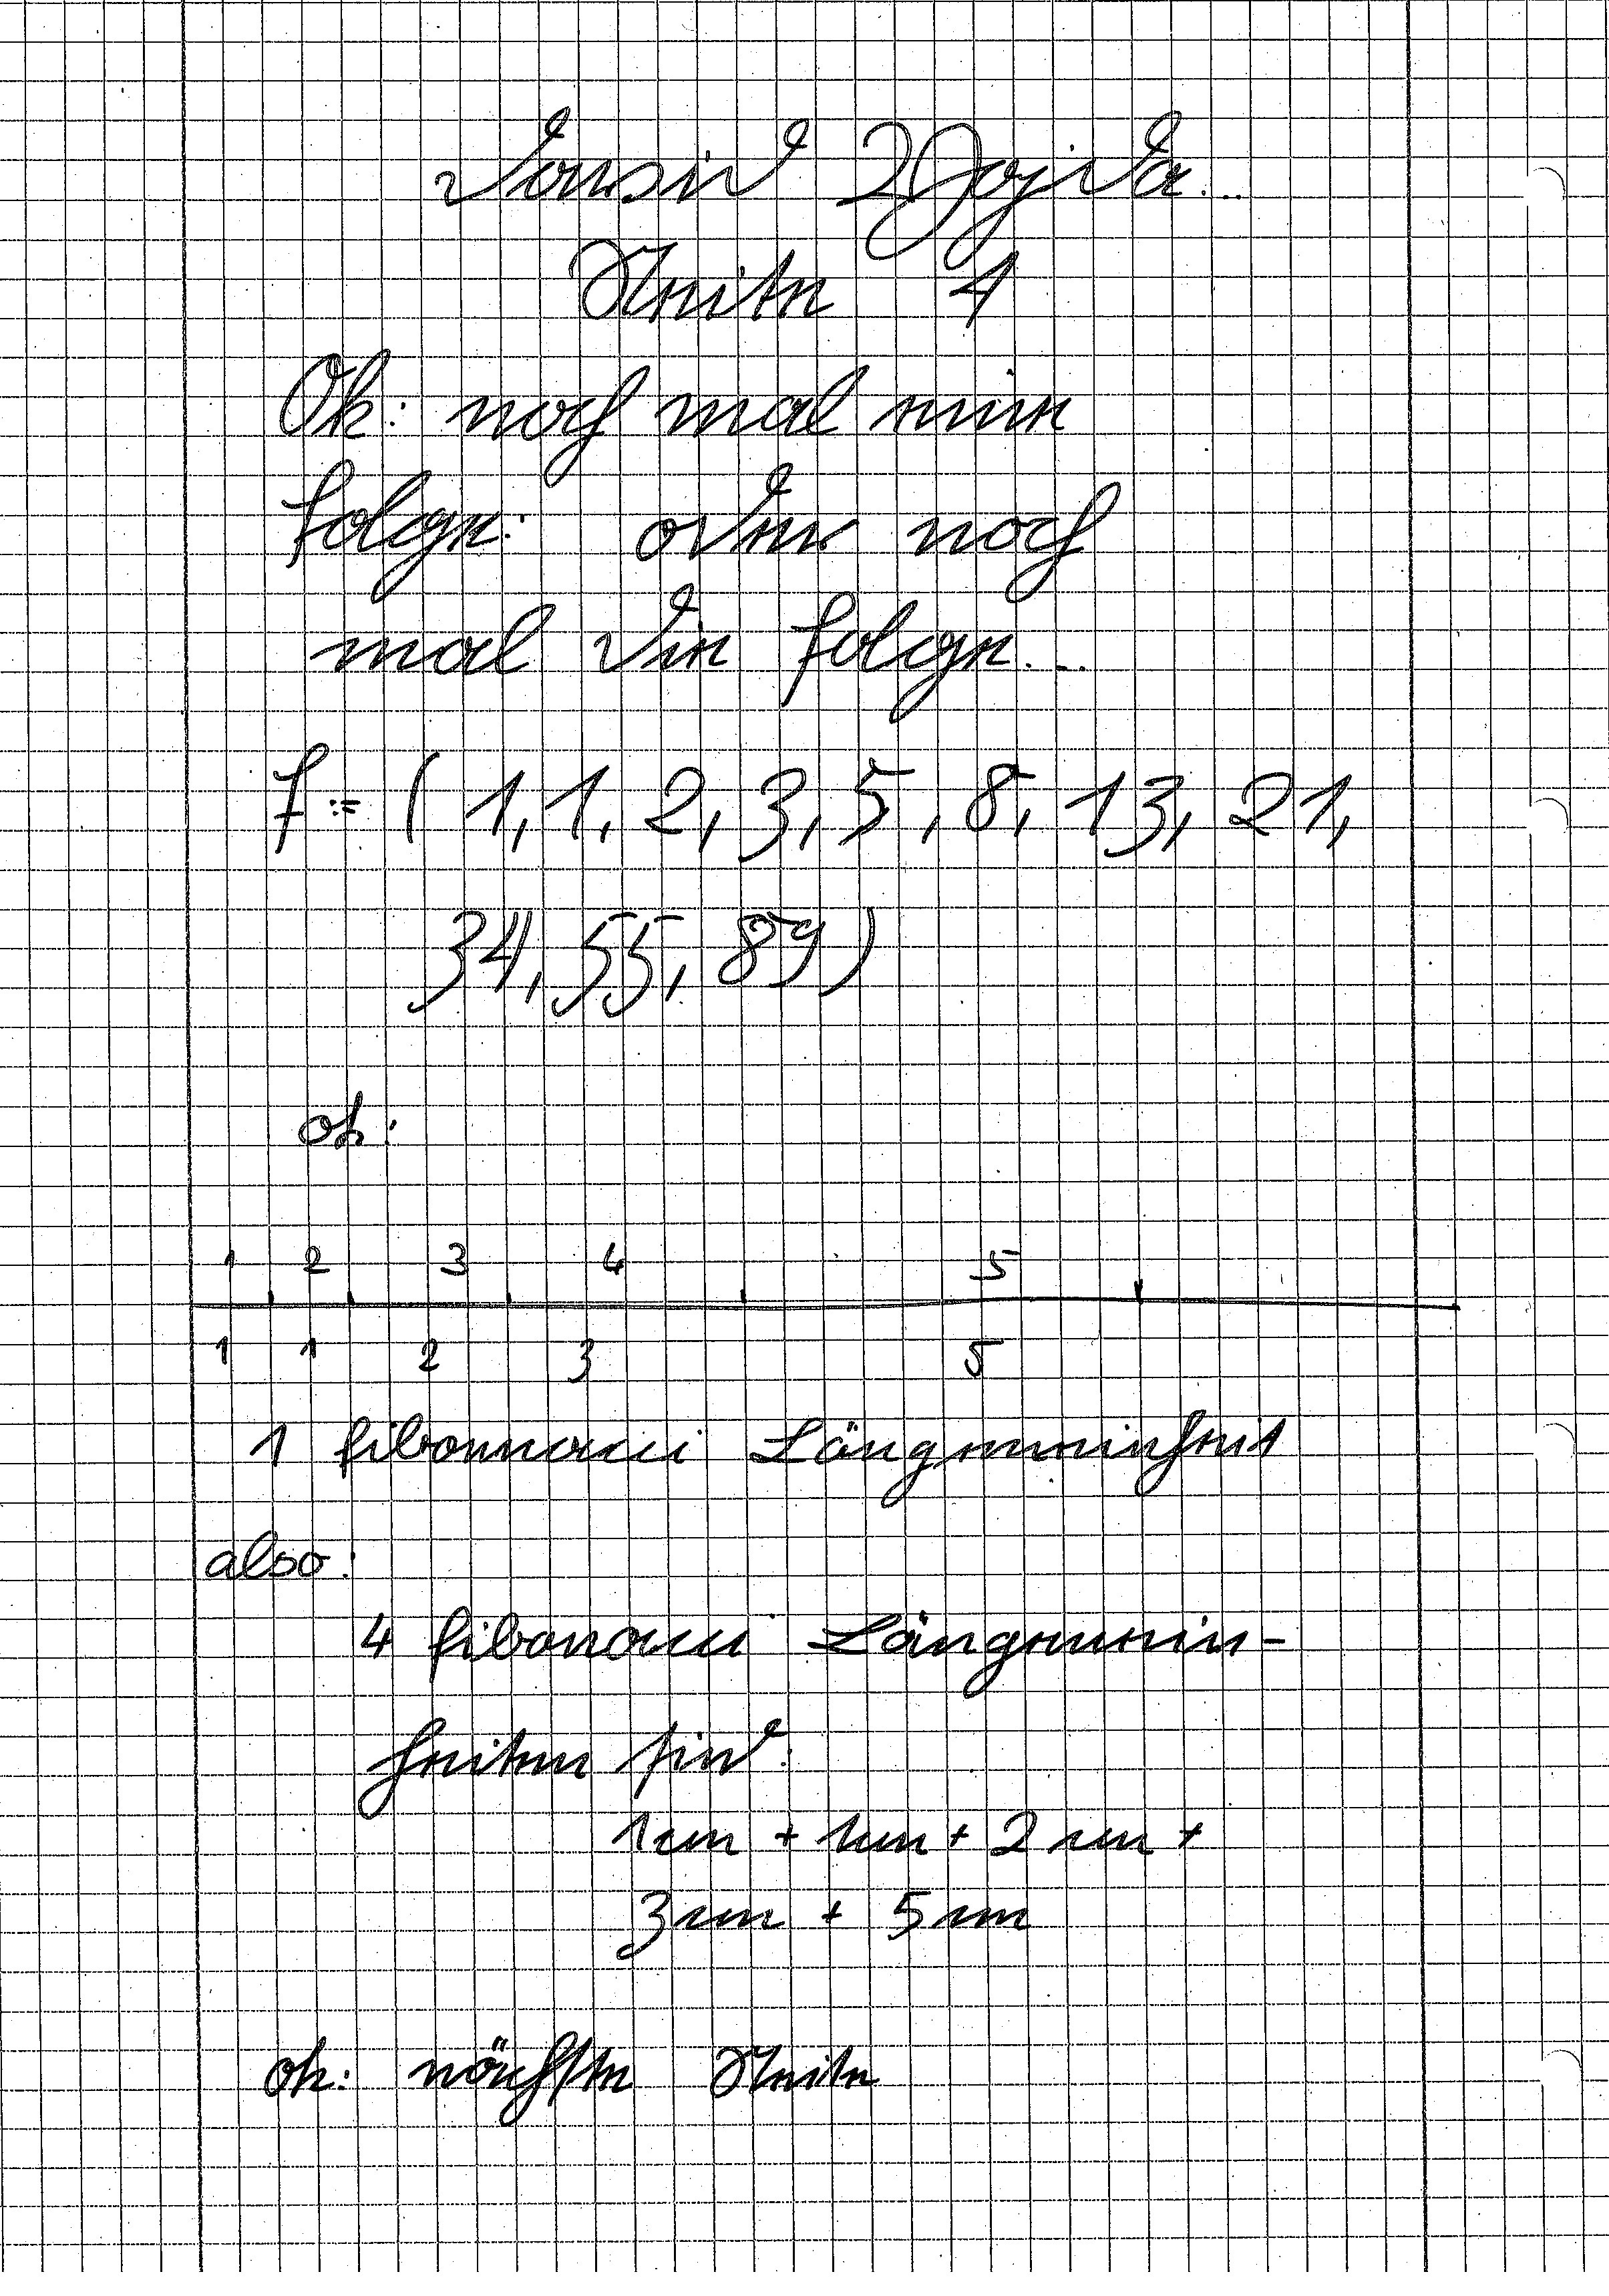 Seite 4
Ok: noch mal eine
folge: oder noch
mal die folge...
f := ( 1, 1, 2, 3, 5, 8, 13, 21,
34, 55, 89)
ok:
1 2 3 4 5
1 1 2 3 5
1 fibonnacci Längeneinheit
also:
4 fibonacci Längenein-
heiten sind:
1cm + 1cm + 2cm +
3cm + 5cm
ok: nächste Seite